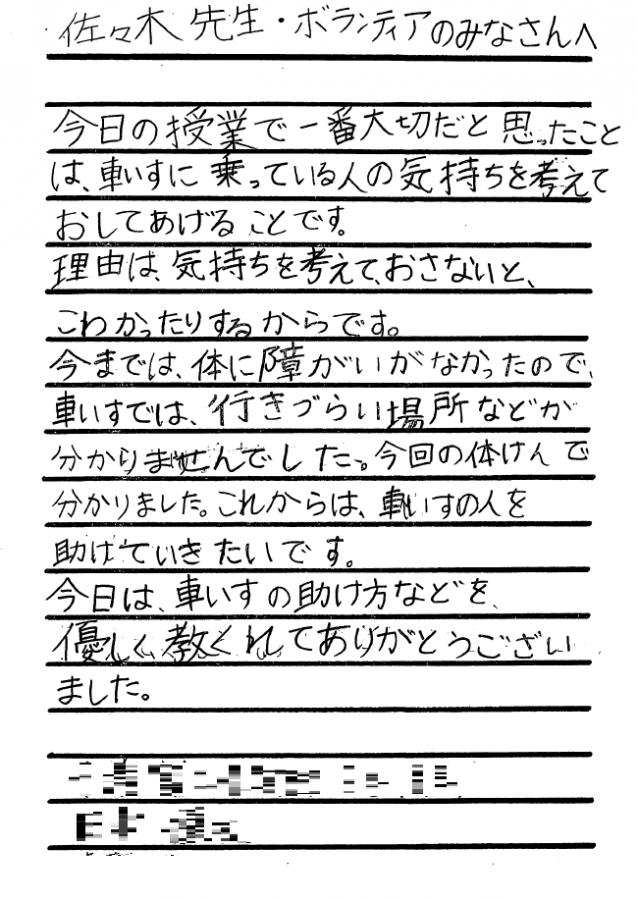 佐々木先生・ボランティアのみなさんへ
今日の授業で一番大切だと思ったこと
は、車いすに乗っている人の気持ちを考えて
おしてあげることです。
理由は、気持ちを考えて、おさないと、
こわかったりするからです。
今までは、体に障がいがなかったので、
車いすでは、行きづらい場所などが
分かりませんでした。今回の体けんで
分かりました。これからは、車いすの人を
助けていきたいです。
今日は、車いすの助け方などを、
優しく教くれてありがとうござい
ました。